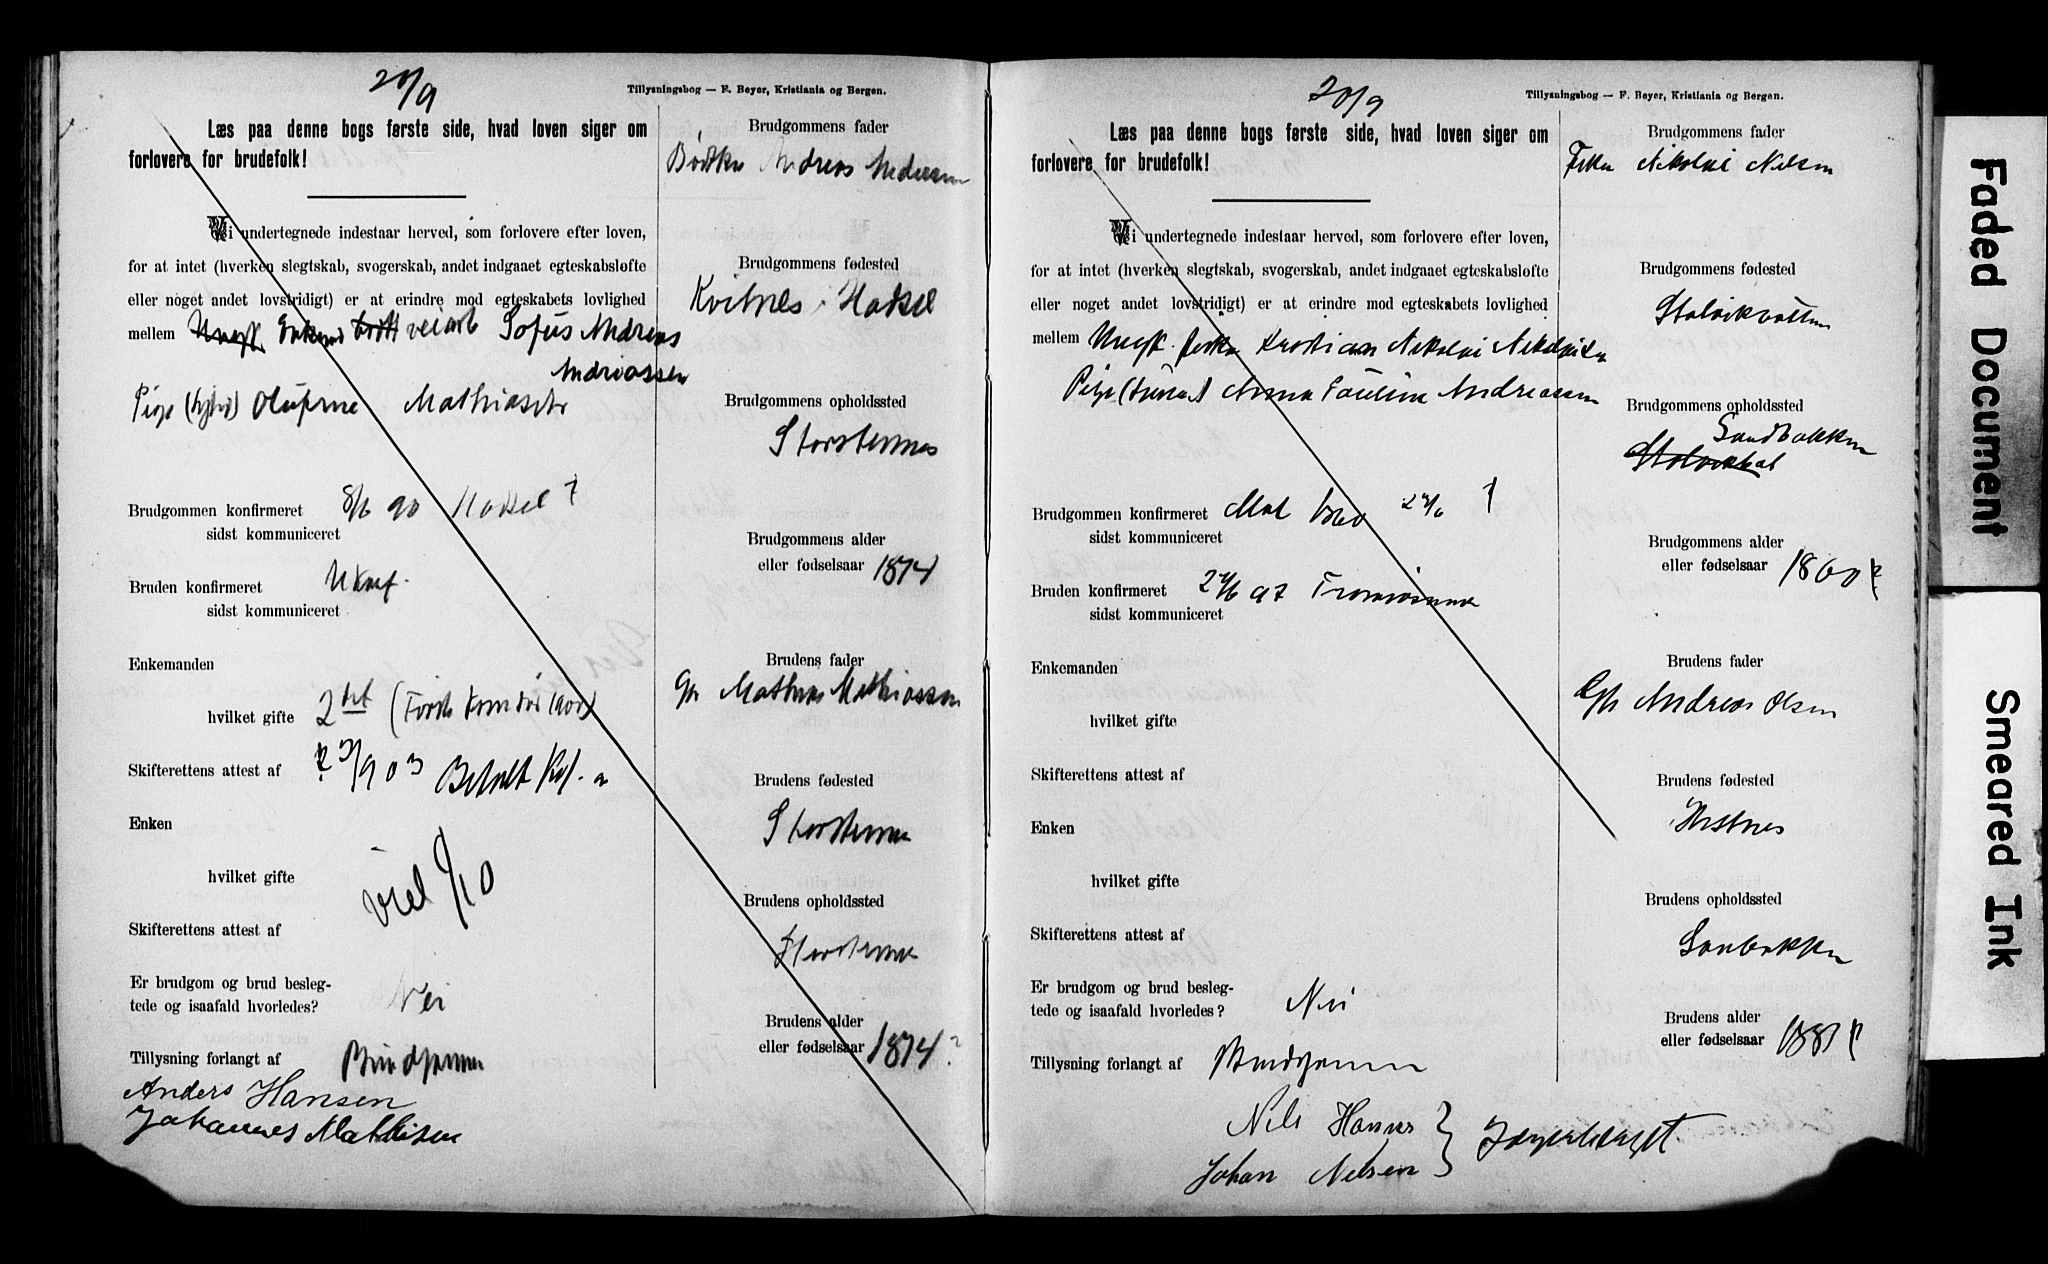 20/9
Tillysningsbog — F. Beyer, Kristiania og Bergen.
Læs paa denne bogs første side, hvad loven siger om
forlovere for brudefolk!
Vi undertegnede indestaar herved, som forlovere efter loven,
for at intet (hverken slegtskab, svogerskab, andet indgaaet egteskabsløfte
eller noget andet lovstridigt) er at erindre mod egteskabets lovlighed
mellem Ungk. Enkemd veiarb Sofus Andreas
Andreassen
Pige Olufine Mathiasen
Brudgommen konfirmeret 8/6 90 Hadsel
sidst kommuniceret
Bruden konfirmeret Ukonf.
sidst kommuniceret
Enkemanden
hvilket gifte 2det (Første
Skifterettens attest af 903 Betalt
Enken
hvilket gifte
viet /10
Skifterettens attest af
Er brudgom og brud besleg-
tede og isaafald hvorledes? Nei
Tillysning forlangt af Brudgommen
Anders Hansen
Johannes Mathisen
Brudgommens fader
Bødker Andreas Andreassen
Brudgommens fødested
Kvitnes i Hadsel
Brudgommens opholdssted
Storstennes
Brudgommens alder
eller fødselsaar 1874
Brudens fader
Gbr Mathias Mathiassen
Brudens fødested
Storstennes
Brudens opholdssted
Storstennes
Brudens alder
eller fødselsaar 1874?
20/9
Tillysningsbog — F. Beyer, Kristiania og Bergen.
Læs paa denne bogs første side, hvad loven siger om
forlovere for brudefolk!
Vi undertegnede indestaar herved, som forlovere efter loven,
for at intet (hverken slegtskab, svogerskab, andet indgaaet egteskabsløfte
eller noget andet lovstridigt) er at erindre mod egteskabets lovlighed
mellem Ungk. fisker Kristian Nikolai Nikolaisen
Pige Anna Pauline Andreassen
Brudgommen konfirmeret
sidst kommuniceret
Bruden konfirmeret 97 Tromsøsund
sidst kommuniceret
Enkemanden
hvilket gifte
Skifterettens attest af
Enken
hvilket gifte
Skifterettens attest af
Er brudgom og brud besleg-
tede og isaafald hvorledes? Nei
Tillysning forlangt af Brudgommen
Nils Hansen
Johan Nilsen
Brudgommens fader
Fisker Nikolai Nilsen
Brudgommens fødested
Stalvikvatten
Brudgommens opholdssted
Sandbakken
Brudgommens alder
eller fødselsaar 1860?
Brudens fader
Gbr Andreas Olsen
Brudens fødested
Brudens opholdssted
Sanbakken
Brudens alder
eller fødselsaar 1881?
Faded Document
Smeared Ink